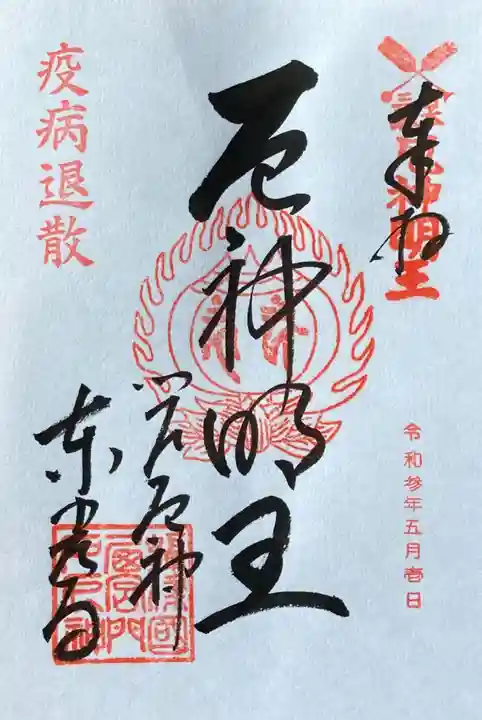 神明王
奉拝
令和参年五月壱日
厄神明王
門戸厄神
東光寺
疫病退散